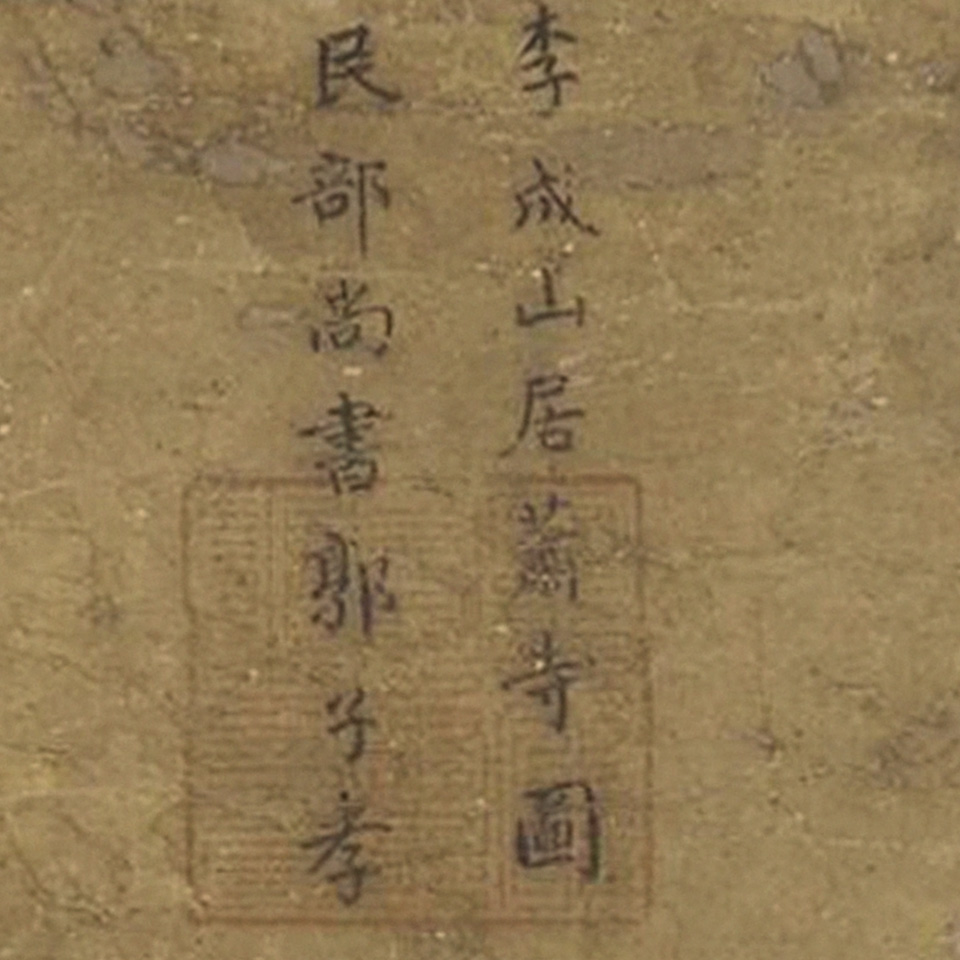 李成山居蕭寺圖
民部尚書鄣子孝